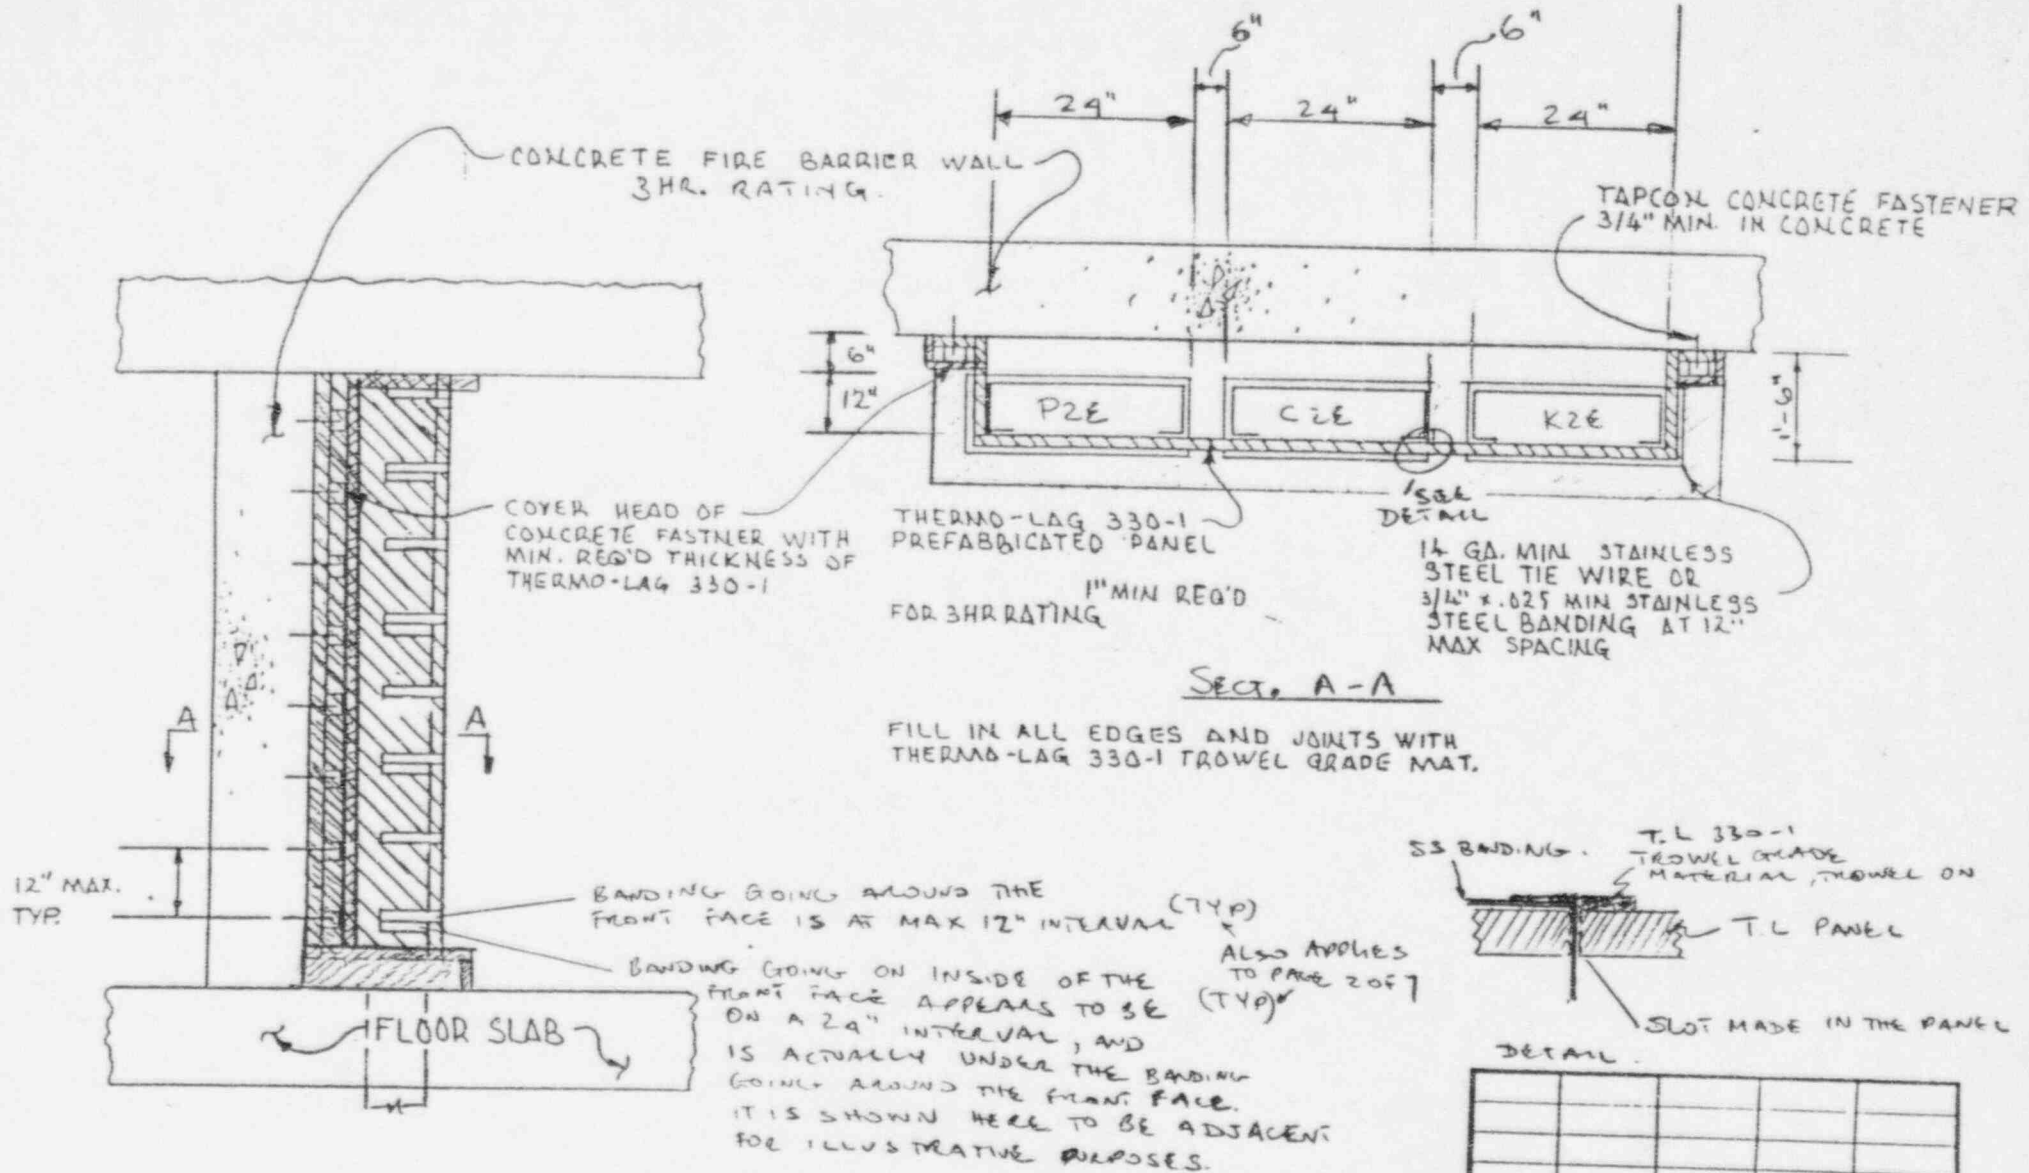 6"
6"
24"
24"
24"
CONCRETE FIRE BARRIER WALL
3HR. RATING.
TAPCON CONCRETE FASTENER
3/4" MIN. IN CONCRETE
6"
12"
P2E
C2E
K2E
1'-6"
COVER HEAD OF
CONCRETE FASTNER WITH
MIN. REQ'D THICKNESS OF
THERMO-LAG 330-1
THERMO-LAG 330-1
PREFABBICATED PANEL
SEE
DETAIL
1" MIN REQ'D
FOR 3HR RATING
14 GA. MIN STAINLESS
STEEL TIE WIRE OR
3/4" x .025 MIN STAINLESS
STEEL BANDING AT 12"
MAX SPACING
SECT. A-A
FILL IN ALL EDGES AND JOINTS WITH
THERMO-LAG 330-1 TROWEL GRADE MAT.
A
A
12" MAX.
TYP.
BANDING GOING AROUND THE
FRONT FACE IS AT MAX 12" INTERVAL (TYP)
ALSO APPLIES
TO PAGE 2 OF 7
BANDING GOING ON INSIDE OF THE
FRONT FACE APPEARS TO BE (TYP)
ON A 24" INTERVAL, AND
IS ACTUALLY UNDER THE BANDING
GOING AROUND THE FRONT FACE.
IT IS SHOWN HERE TO BE ADJACENT
FOR ILLUSTRATIVE PURPOSES.
FLOOR SLAB
SS BANDING.
T.L 330-1
TROWEL GRADE
MATERIAL, TROWEL ON
T.L PANEL
SLOT MADE IN THE PANEL
DETAIL.